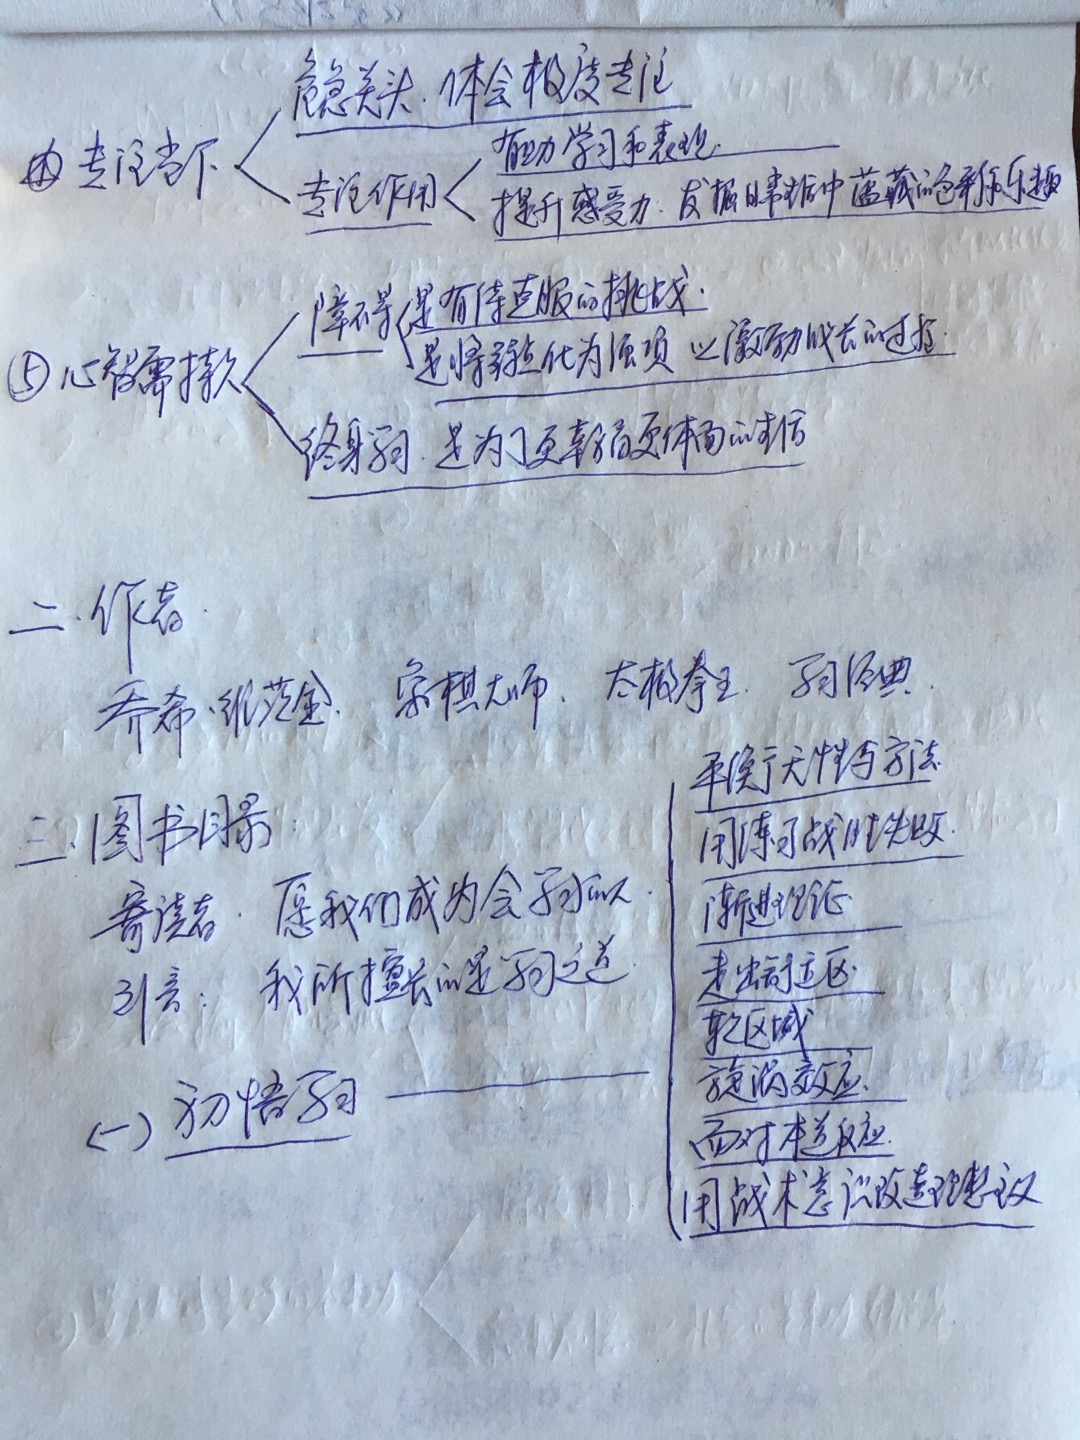 ④专注当下
危急关头.体会极度专注
专注作用
有助力学习和表现.
提升感受力.发掘日常生活中蕴藏的色彩和乐趣
⑤心智需
障碍
是有待克服的挑战.
是将弱点化为强项 以激励成长的过程.
终身学习.是为了更幸福更体面的生活
二.作者.
乔希·维茨金. 象棋大师. 太极拳王. 学习经典.
三.图书目录.
寄读者. 愿我们成为会学习的人.
引言: 我所擅长的是学习之道.
(一)初悟学习
平衡于天性与方法
用练习战胜失败.
渐进理论
走出舒适区.
软区域
旋涡效应.
面对本道反应.
用战术意识改造理想主义